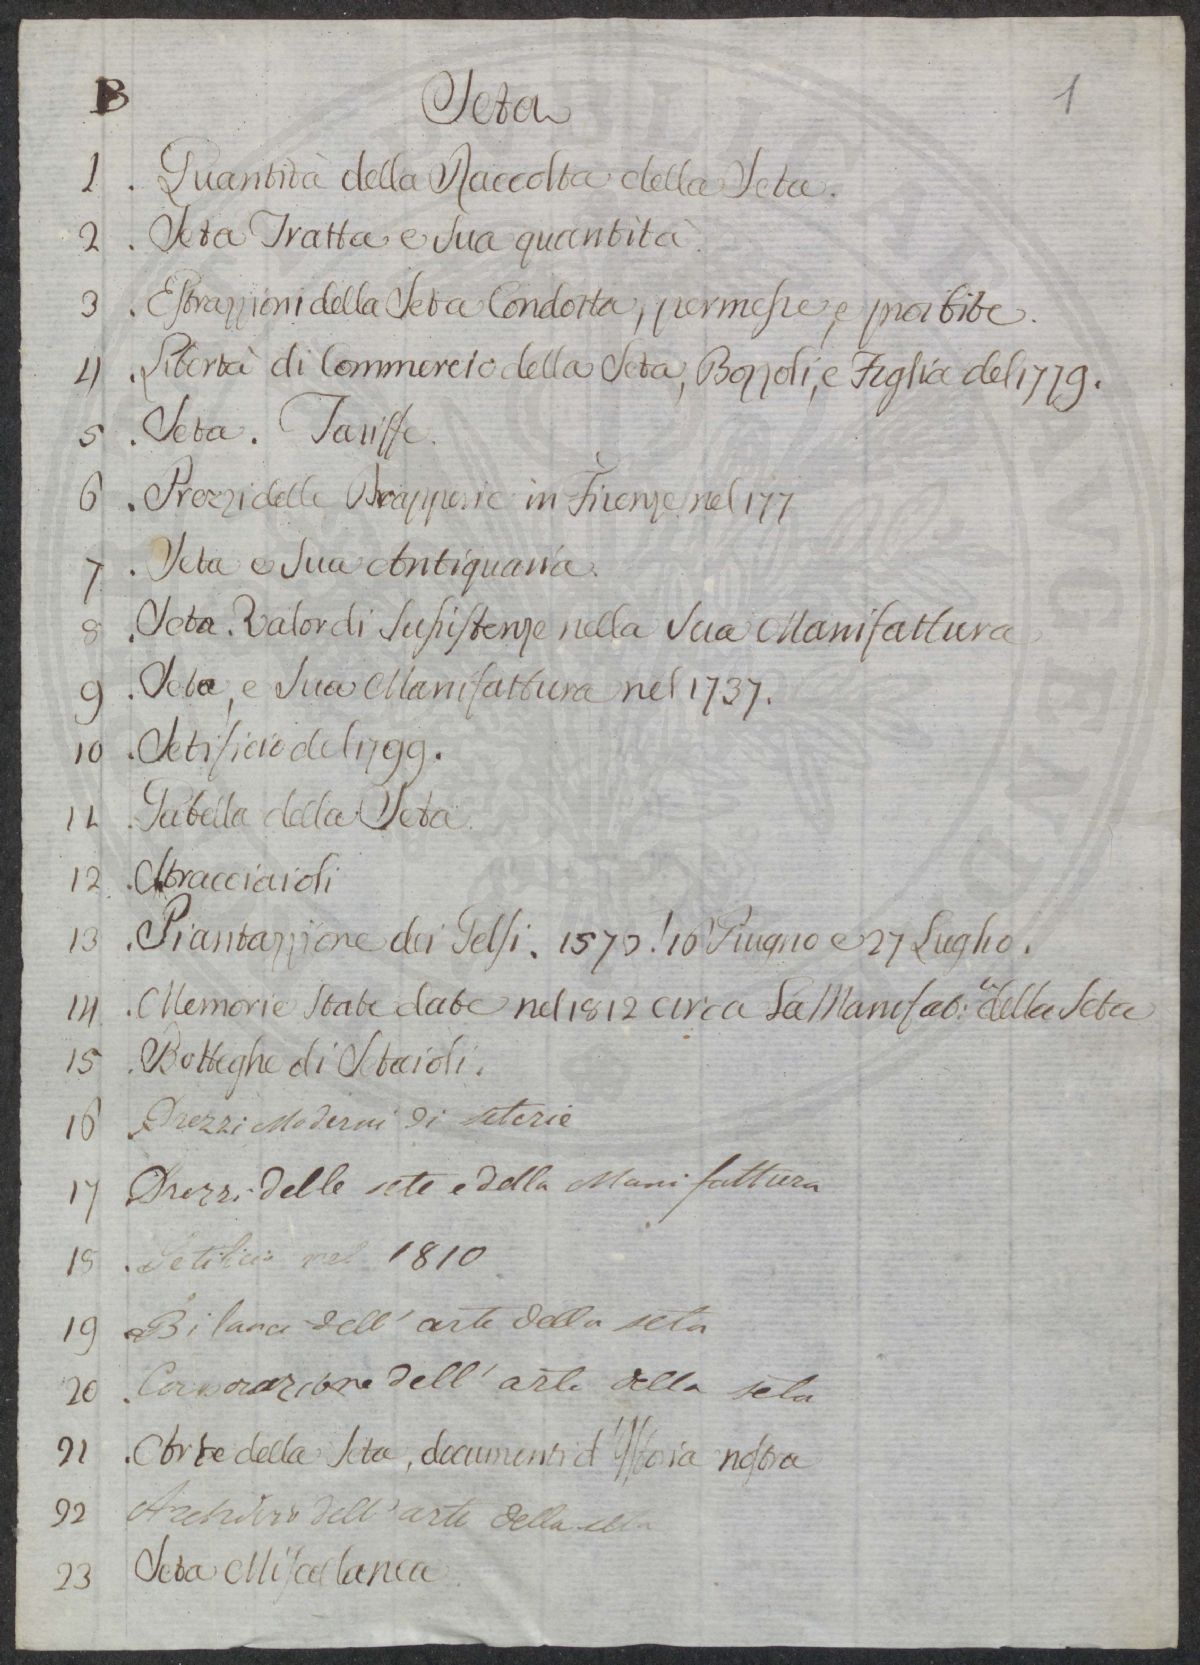 B Seta 1
1 . Quantità della Raccolta della Seta.
2 . Seta Tratta e sua quantità.
3 . Estrazzioni della Seta Condotta, permesse, e proibite.
4 . Libertà di Commercio della Seta, Bozzoli, e Foglia del 1779.
5 . Seta. Tariffe.
6 . Prezzi delle Drapperie in Firenze nel 177
7 . Seta e sua Antiquaria.
8 . Seta. Valor di Sussistenze nella sua Manifattura
9 . Seta, e sua Manifattura nel 1737.
10 . Setificio del 1799.
11 . Tabella della Seta.
12 . Stracciaioli
13 . Piantazzione dei Gelsi. 1573. 16 Giugno e 27 Luglio.
14 . Memorie state date nel 1812 circa La Manifat:ra della Seta
15 . Botteghe di Setaioli.
16 . Prezzi Moderni di seterie
17 Prezzi delle sete e della Manifattura
18 . Setificio nel 1810
19 Bilanci dell' arte della seta
20 . Corporazione dell' arte della seta
21 . Arte della Seta, documenti d'Istoria nostra
22 Archivio dell' arte della seta
23 Seta Miscellanea.